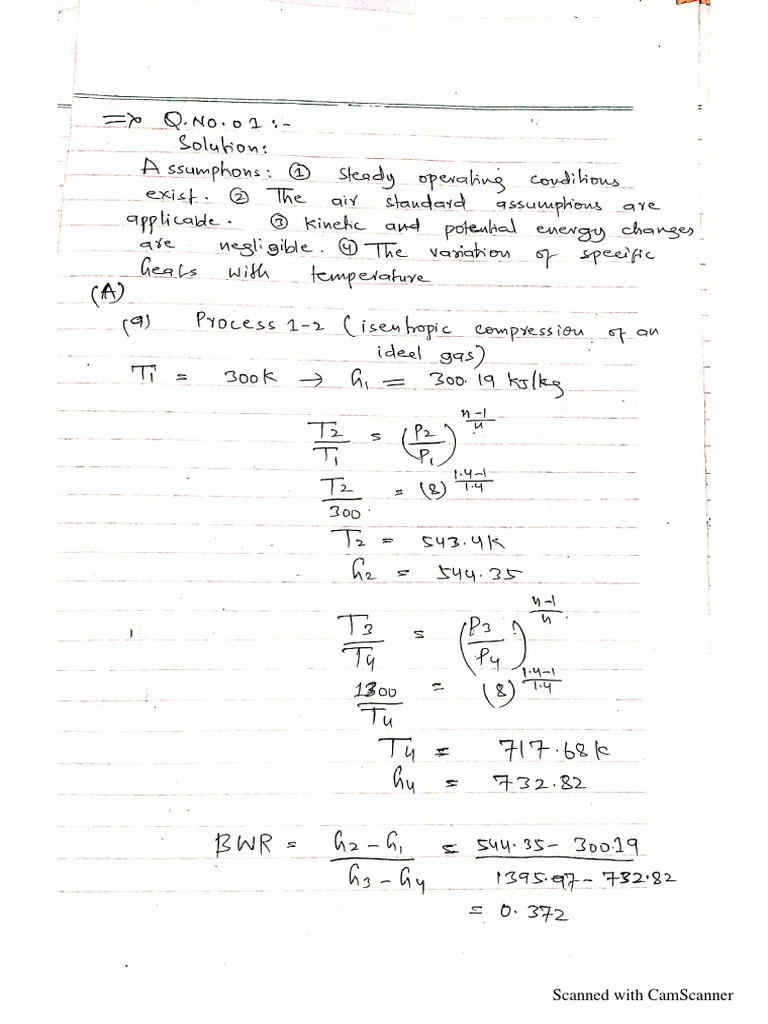 => Q.NO.01:-
Solution:
Assumphons: ① steady operating conditions
exist. ② The air standard assumptions are
applicable. ③ kinetic and potential energy changes
are negligible. ④ The variation of specific
heats with temperature
(A)
(a) Process 1-2 (isentropic compression of an
ideel gas)
T1 = 300K → h1 = 300.19 kJ/kg
T2/T1 = (P2/P1)^((n-1)/n)
T2/300 = (8)^((1.4-1)/1.4)
T2 = 543.4K
h2 = 544.35
T3/T4 = (P3/P4)^((n-1)/n)
1300/T4 = (8)^((1.4-1)/1.4)
T4 = 717.68k
h4 = 732.82
BWR = (h2-h1)/(h3-h4) = (544.35-300.19)/(1395.97-732.82)
= 0.372
Scanned with CamScanner